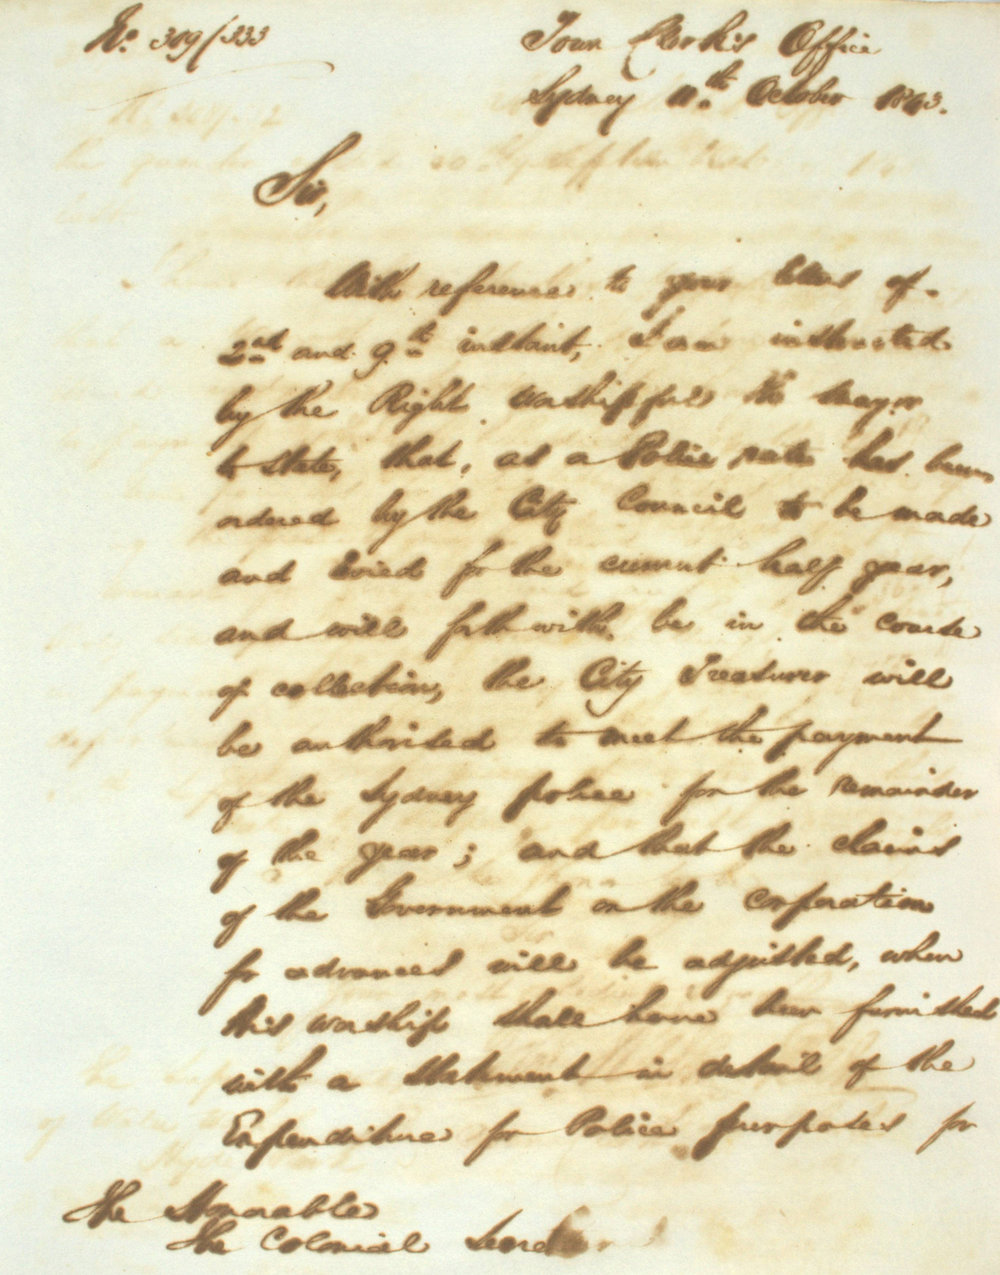 No. 389/333
Town Clerk's Office
Sydney 11th October 1843.
Sir,
With reference to your letters of
2nd and 9th instant, I am instructed
by the Right worshipful the Mayor
to state, that, as a Police rate has been
ordered by the City Council to be made
and levied for the current half year,
and will forthwith be in the course
of collection, the City Treasurer will
be authorised to meet the payment
of the Sydney police for the remainder
of the year; and that the claims
of the Government on the corporation
for advances will be adjusted, when
His worship shall have been furnished
with a statement in detail of the
Expenditure for Police purposes for
The Honorable
The Colonial